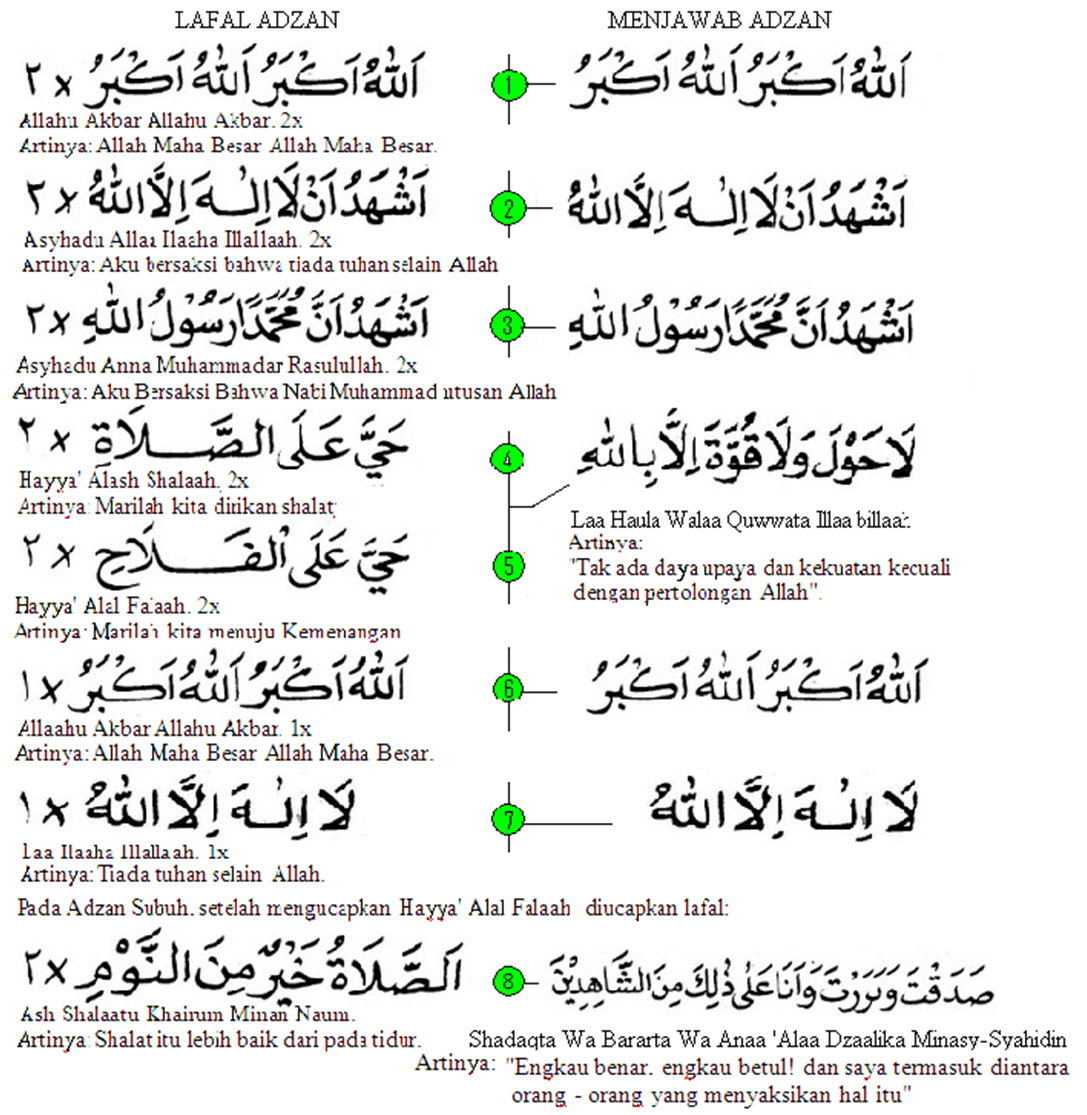 LAFAL ADZAN
MENJAWAB ADZAN
اَللّٰهُ اَكْبَرُ اَللّٰهُ اَكْبَرُ × ٢
1
اَللّٰهُ اَكْبَرُ اَللّٰهُ اَكْبَرُ
Allahu Akbar Allahu Akbar. 2x
Artinya: Allah Maha Besar Allah Maha Besar.
اَشْهَدُ اَنْ لَا اِلٰهَ اِلَّا اللّٰهُ × ٢
2
اَشْهَدُ اَنْ لَا اِلٰهَ اِلَّا اللّٰهُ
Asyhadu Allaa Ilaaha Illallaah. 2x
Artinya: Aku bersaksi bahwa tiada tuhan selain Allah
اَشْهَدُ اَنَّ مُحَمَّدًا رَسُوْلُ اللّٰهِ × ٢
3
اَشْهَدُ اَنَّ مُحَمَّدًا رَسُوْلُ اللّٰهِ
Asyhadu Anna Muhammadar Rasulullah. 2x
Artinya: Aku Bersaksi Bahwa Nabi Muhammad utusan Allah
حَيَّ عَلَى الصَّلَاةِ × ٢
4
لَا حَوْلَ وَلَا قُوَّةَ اِلَّا بِاللّٰهِ
Hayya' Alash Shalaah. 2x
Artinya: Marilah kita dirikan shalat
Laa Haula Walaa Quwwata Illaa billaah
Artinya:
"Tak ada daya upaya dan kekuatan kecuali
dengan pertolongan Allah".
حَيَّ عَلَى الْفَلَاحِ × ٢
5
Hayya' Alal Falaah. 2x
Artinya: Marilah kita menuju Kemenangan
اَللّٰهُ اَكْبَرُ اَللّٰهُ اَكْبَرُ × ١
6
اَللّٰهُ اَكْبَرُ اَللّٰهُ اَكْبَرُ
Allaahu Akbar Allahu Akbar. 1x
Artinya: Allah Maha Besar Allah Maha Besar.
لَا اِلٰهَ اِلَّا اللّٰهُ × ١
7
لَا اِلٰهَ اِلَّا اللّٰهُ
Laa Ilaaha Illallaah. 1x
Artinya: Tiada tuhan selain Allah.
Pada Adzan Subuh, setelah mengucapkan Hayya' Alal Falaah diucapkan lafal:
اَلصَّلَاةُ خَيْرٌ مِنَ النَّوْمِ × ٢
8
صَدَقْتَ وَبَرَرْتَ وَاَنَا عَلٰى ذٰلِكَ مِنَ الشَّاهِدِيْنَ
Ash Shalaatu Khairum Minan Naum.
Artinya: Shalat itu lebih baik dari pada tidur.
Shadaqta Wa Bararta Wa Anaa 'Alaa Dzaalika Minasy-Syahidin
Artinya: "Engkau benar, engkau betul! dan saya termasuk diantara
orang - orang yang menyaksikan hal itu"